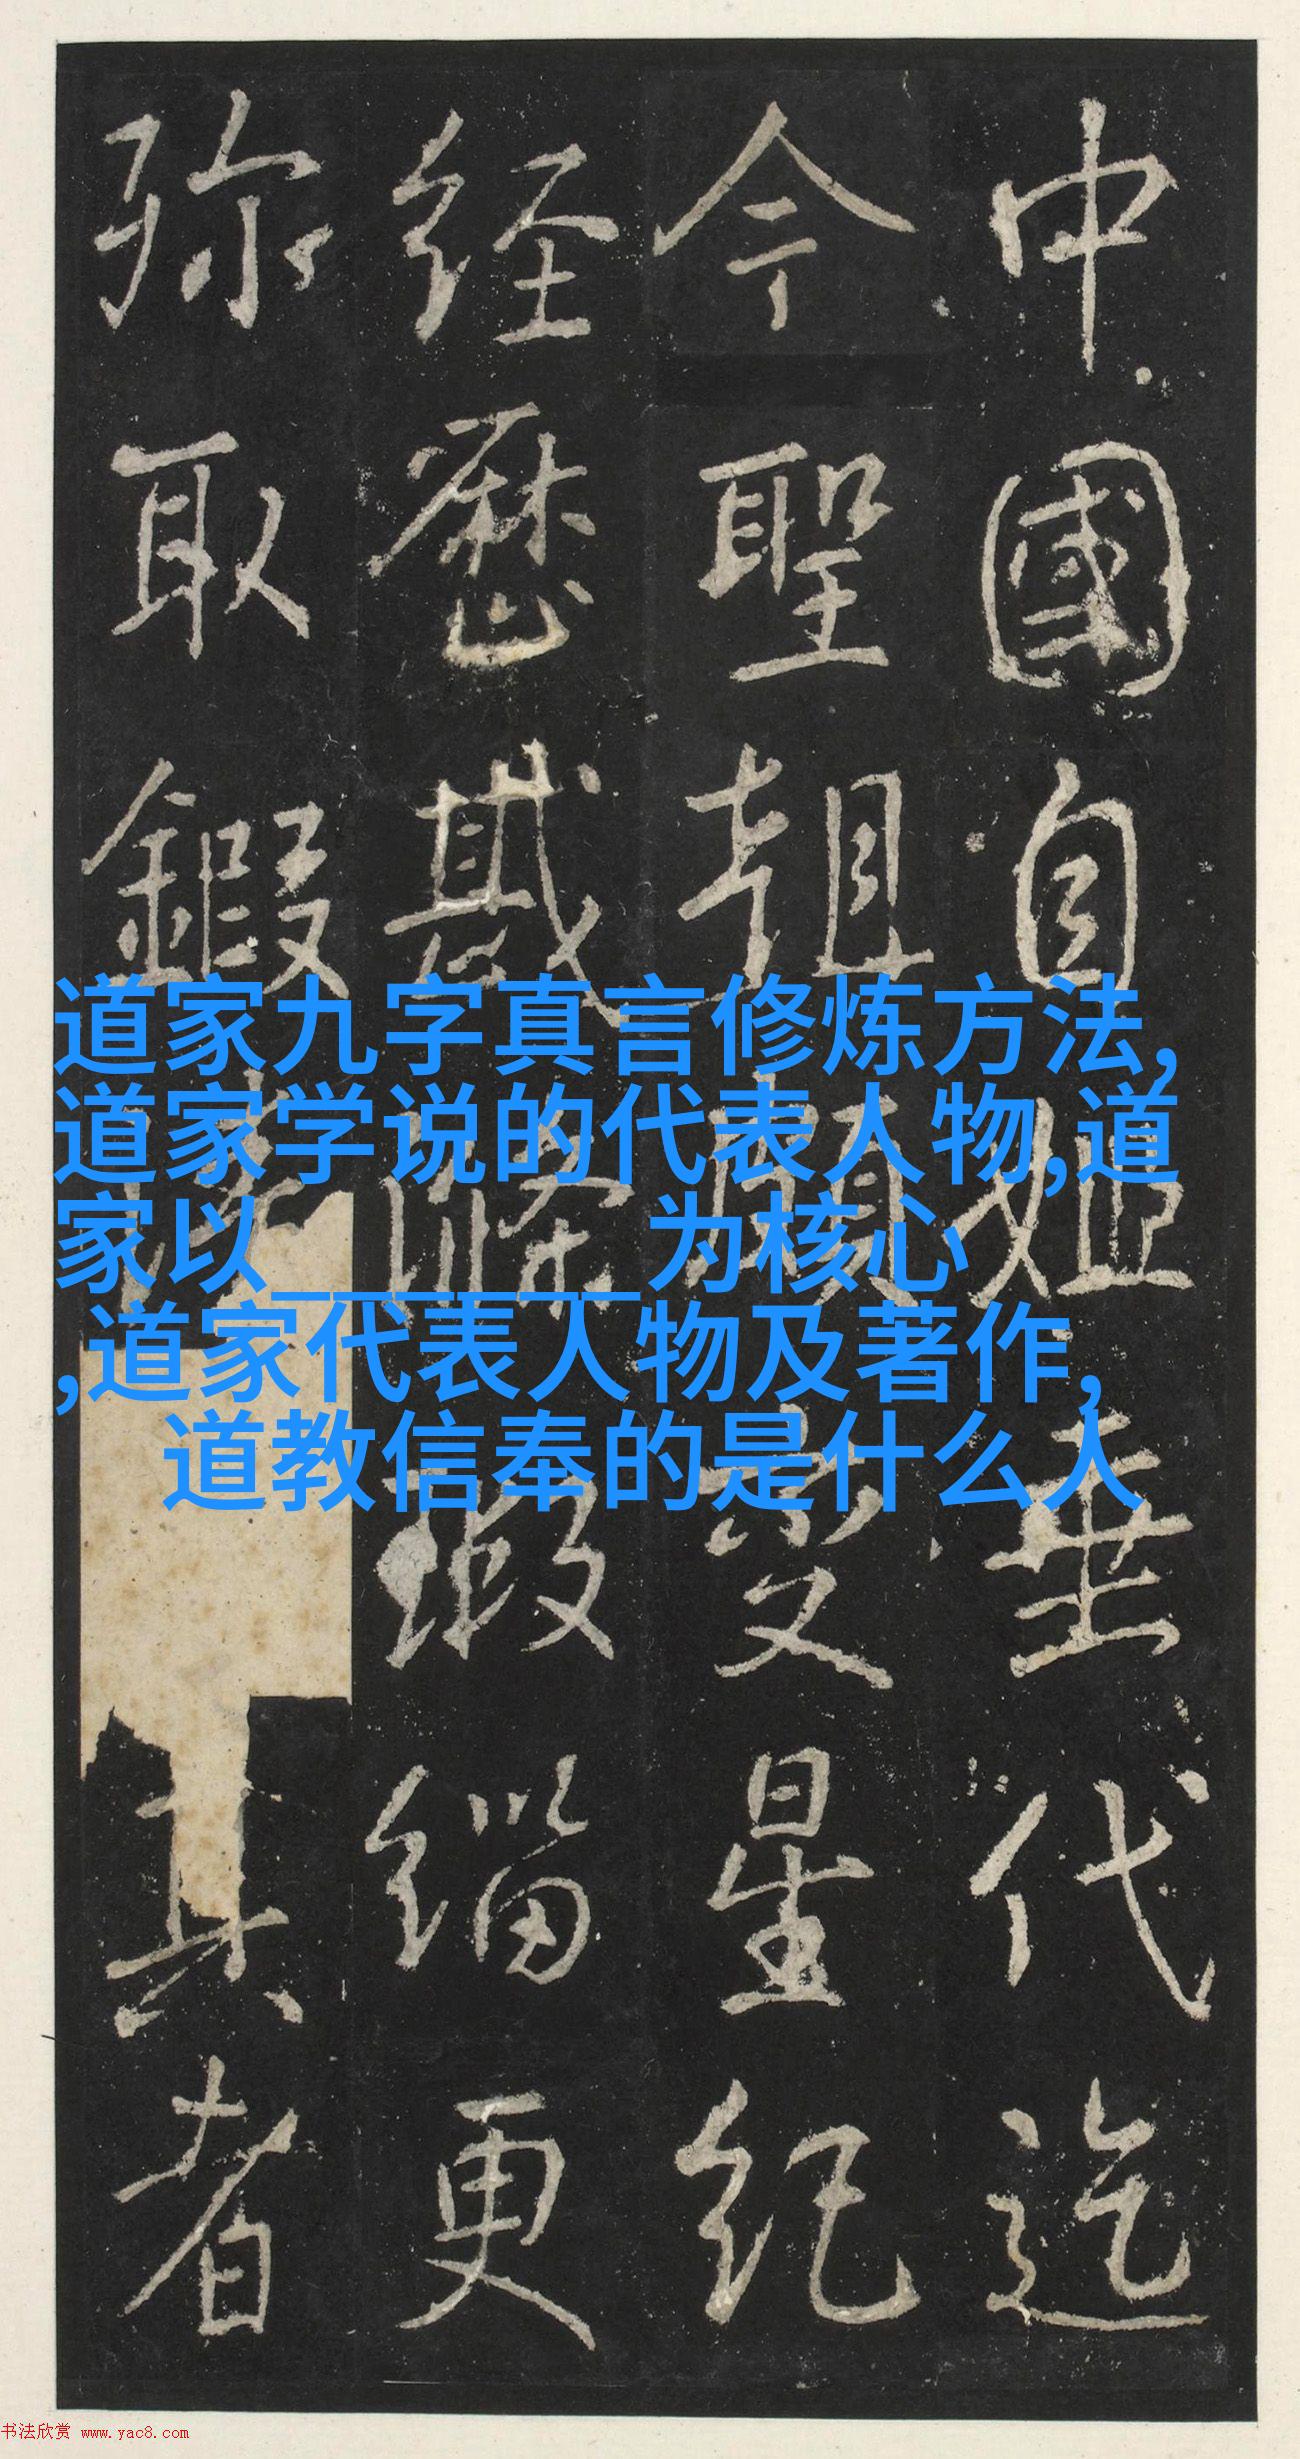 中國自姬垂代迄
今聖朝變星紀
经歷瑕緇更
弥取鍜真者
道家九字真言修炼方法,
道家学说的代表人物,道
家以______为核心
,道家代表人物及著作,
道教信奉的是什么人
书法欣赏 www.yac8.com